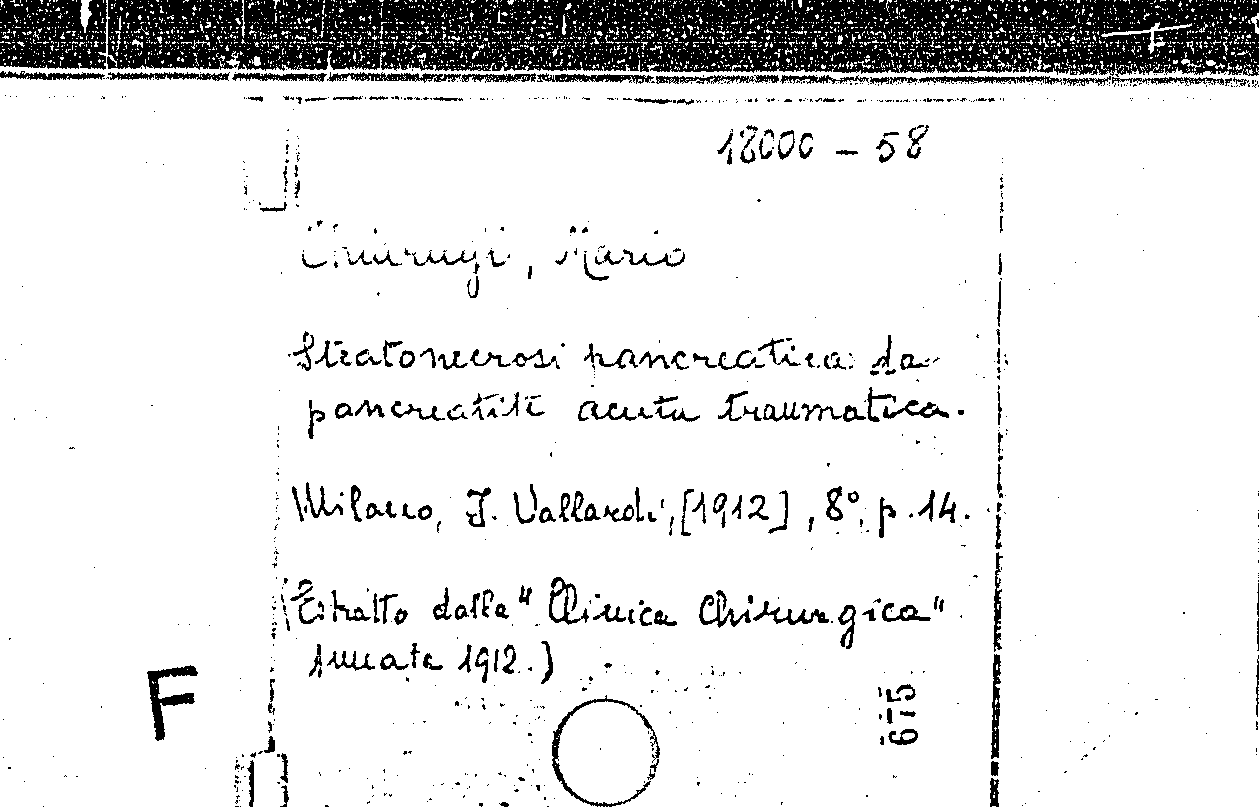 18000 - 58
Chiarugi, Mario
Steatonecrosi pancreatica da
pancreatite acuta traumatica.
Milano, F. Vallardi, [1912], 8°, p. 14.
(Estratto dalla "Clinica Chirurgica"
Annata 1912.)
F
675